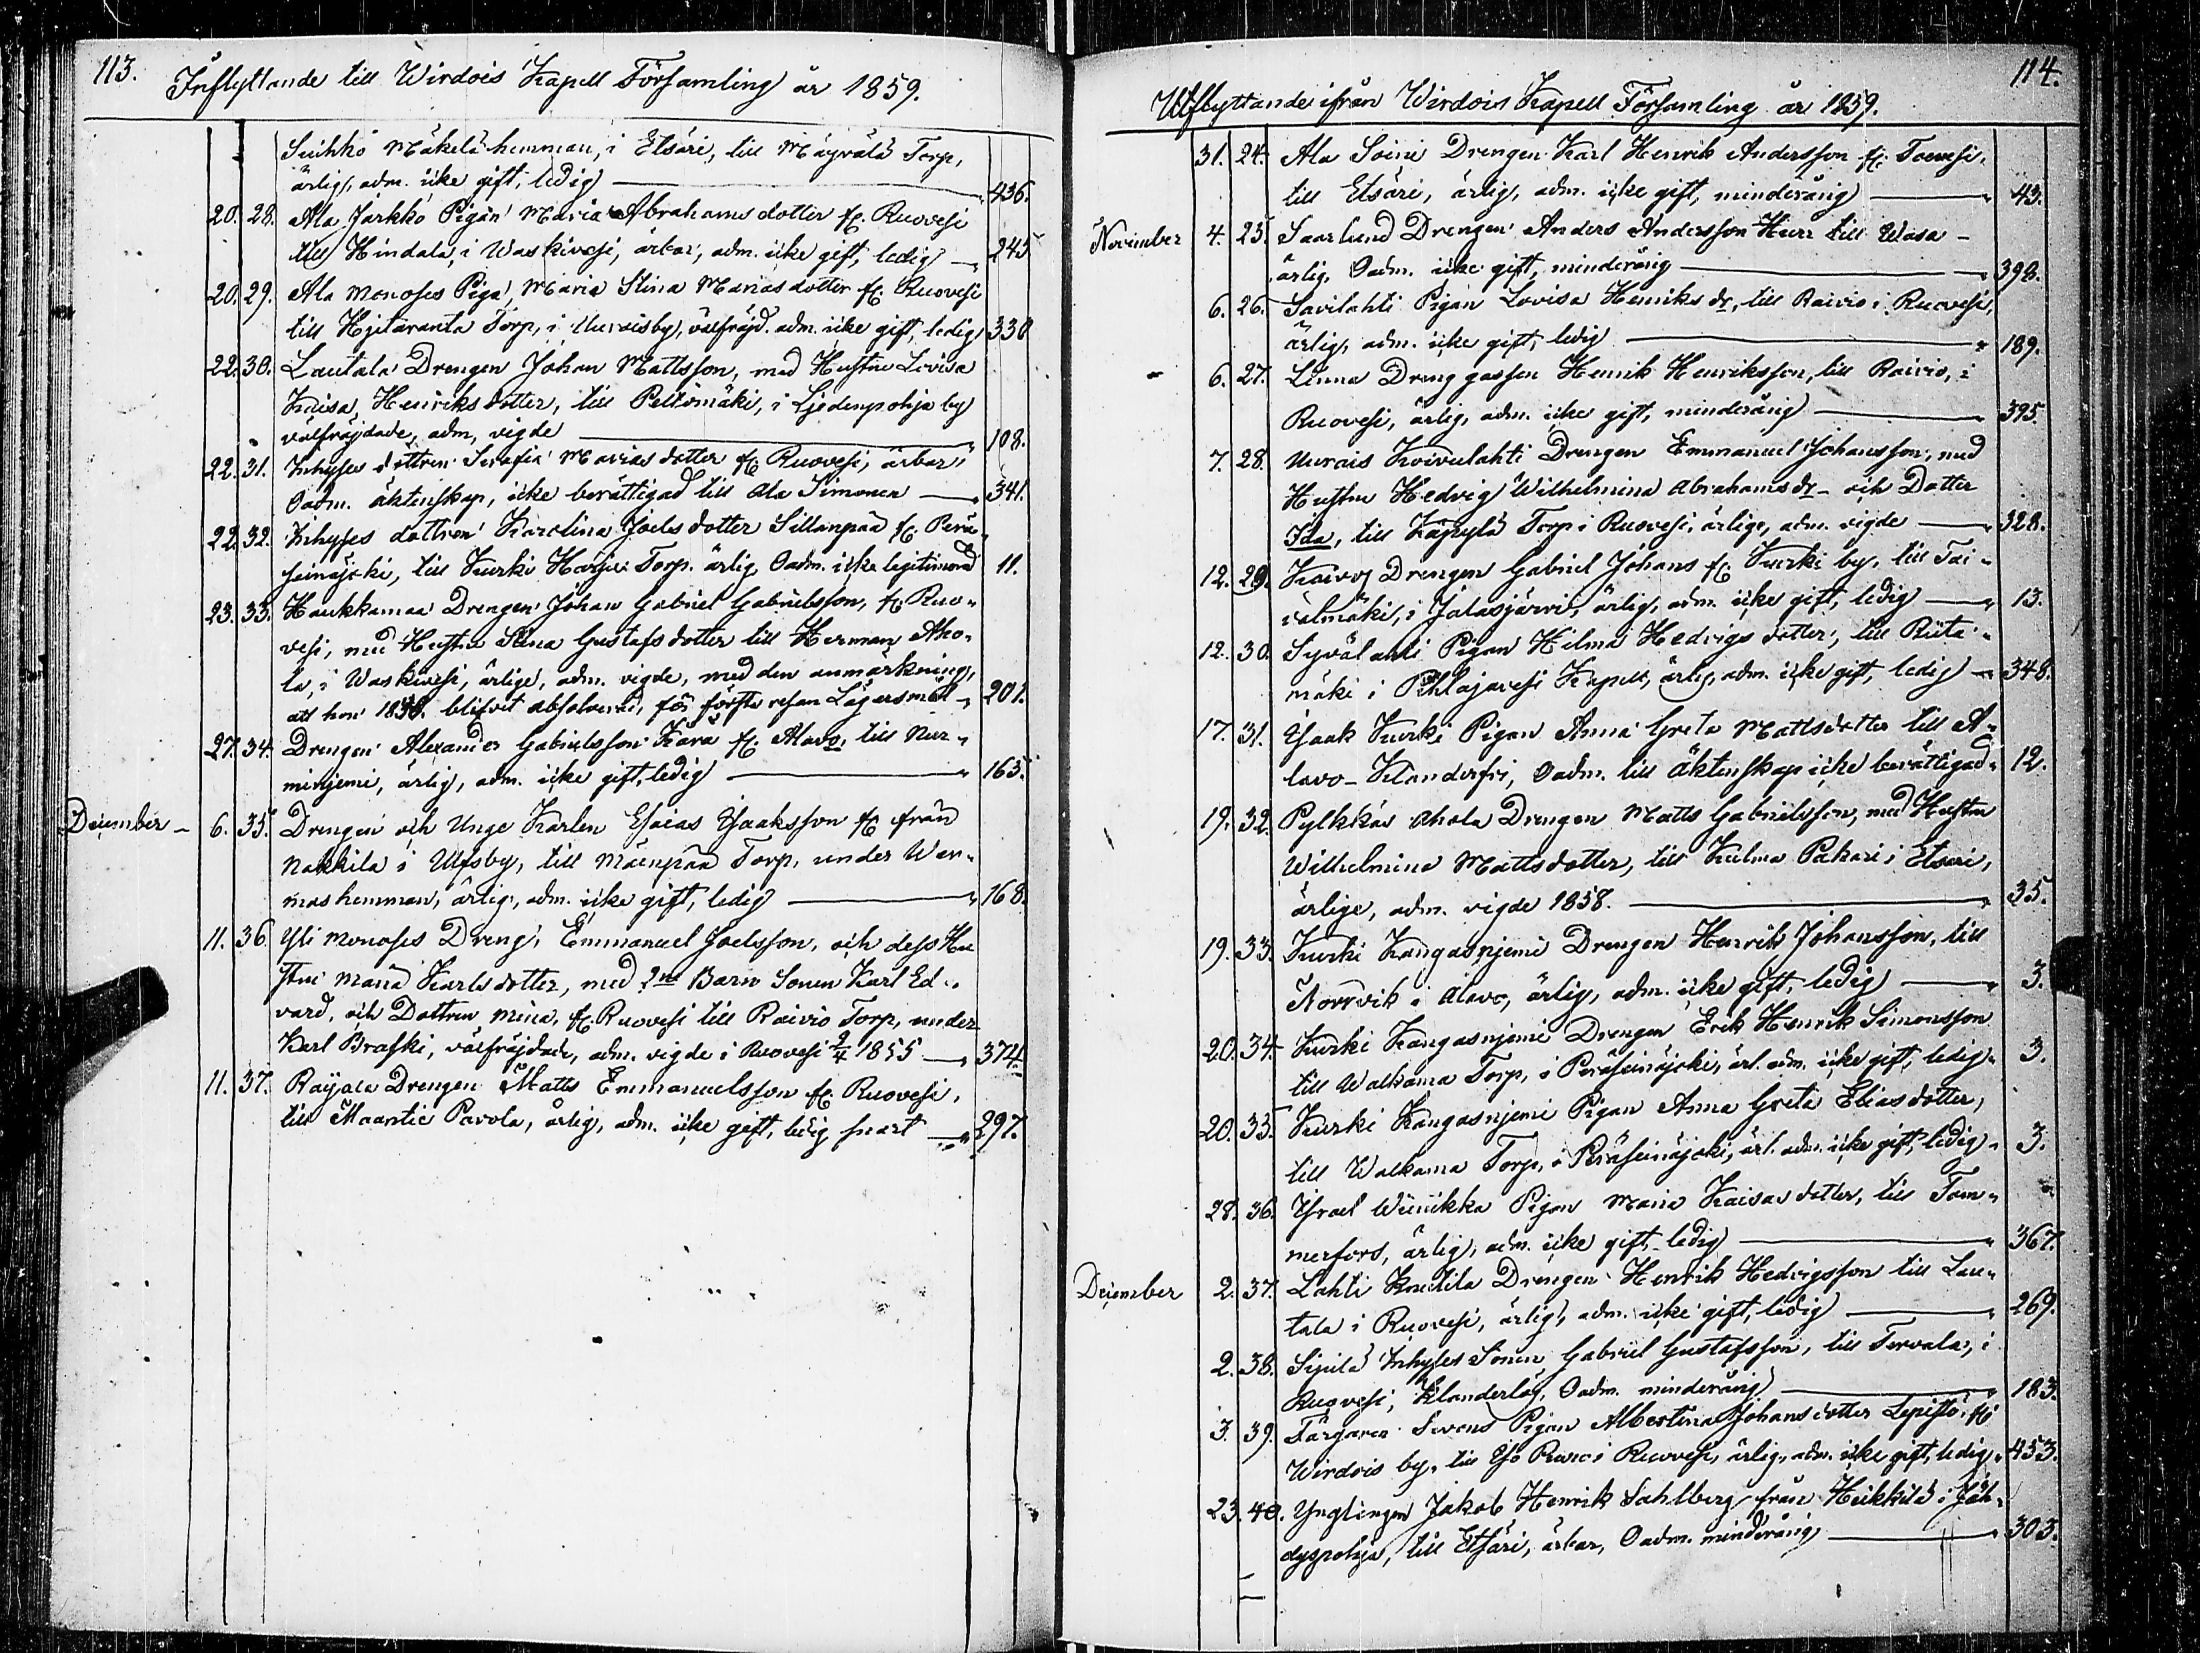 113.
Inflyttande till Wirdois Kapell Församling år 1859.
Suihko Mäkelä hemman, i Etsäri, till Mäyrälä Torp,
ärlig, adm. icke gift, ledig 436.
20. 28. Ala Järkkö Pigan Maria Abrahams dotter fr. Ruovesi
till Hindala, i Waskivesi, ärbar, adm. icke gift, ledig 245
20. 29. Ala Monoses Piga, Maria Stina Marias dotter fr. Ruovesi
till Hjitaranta Torp, i Uuraisby, välfräjd. adm. icke gift, ledig 330
22. 30. Lautala Drengen Johan Mattsson, med Hustru Lovisa
Kaisa, Henriks dotter, till Peltomäki, i Ljedenpohja by
välfräjdade, adm, vigde 108.
22. 31. Inhyses dottren Serafia Marias dotter fr. Ruovesi, ärbar,
Oadm. äktenskap, icke berättigad till Ala Simonen 341.
22. 32. Inhyses dottren Karolina Joels dotter Sillanpää fr. Perä-
seinäjoki, till Kurki Harju Torp. ärlig Oadm. icke legitimerad 11.
23. 33. Haukkamaa Drengen Johan Gabriel Gabrielsson, fr. Ruo-
vesi, med Hustru Stina Gustafs dotter till Herman Aho-
la, i Waskivesi, ärlige, adm. vigde, med den anmärkning,
att hon 1838. blifvit absolverad, för första resan Lägersmål 201.
27. 34. Drengen Alexander Gabrielsson Kärä fr. Alavo, till Nur-
minjemi, ärlig, adm. icke gift, ledig 165.
December 6. 35. Drengen och Unge Karlen Esaias Isaaksson fr. från
Nakkila i Ulfsby, till Mäenpää Torp, under Wer-
mas hemman, ärlig, adm. icke gift, ledig 168.
11. 36. Yli Monoses Dreng, Emmanuel Joelsson, och dess Hu
stru Maria Karls dotter, med 2ne Barn Sonen Karl Ed-
vard, och Dottren Mina, fr. Ruovesi till Raivio Torp, under
Karl Braski, välfräjdade, adm. vigde i Ruovesi 2/4 1855 374.
11. 37. Rajala Drengen Matts Emmanuelsson fr. Ruovesi,
till Maantie Pavola, ärlig, adm. icke gift, ledig snart 297.
114.
Utflyttande ifrån Wirdois Kapell Församling år 1859.
31. 24. Ala Soini Drengen Karl Henrik Andersson fr. Toevesi,
till Etsäri, ärlig, adm. icke gift, minderårig 43.
November 4. 25. Saarlund Drengen Anders Andersson Hurr till Wasa
ärlig, Oadm. icke gift, minderårig 398.
6. 26. Savilahti Pigan Lovisa Henriks dr, till Raivio i Ruovesi,
ärlig, adm. icke gift, ledig 189.
6. 27. Linna Dreng gossen Henrik Henriksson, till Raivio, i
Ruovesi, ärlig, adm. icke gift, minderårig 395.
7. 28. Uurais Koivulahti Drengen Emmanuel Johansson, med
Hustru Hedvig Wilhelmina Abrahams dr och Dotter
Ida, till Käpylä Torp i Ruovesi, ärlige, adm. vigde 328.
12. 29. Koivoj Drengen Gabriel Johans fr. Kurki by, till Tai-
valmäki, i Jalasjärvi, ärlig, adm. icke gift, ledig 13.
12. 30. Syvälahti Pigan Hilma Hedvigs dotter, till Riita-
mäki i Pihlajavesi Kapell, ärlig, adm. icke gift, ledig 348.
17. 31. Isaak Kurki Pigan Anna Greta Mattsdotter till A-
lavo Klanderfri, Oadm. till äktenskap icke berättigad 12.
19. 32. Pylkkäs Ahola Drengen Matts Gabrielsson, med Hustru
Wilhelmina Mattsdotter, till Kulma Pakari i Etseri,
ärlige, adm. vigde 1858. 35.
19. 33. Kurki Kangasnjemi Drengen Henrik Johansson, till
Norrvik i Alavo, ärlig, adm. icke gift, ledig 3.
20. 34. Kurki Kangasnjemi Drengen Erik Henrik Simonsson
till Walkama Torp, i Peräseinäjoki, ärl. adm. icke gift, ledig 3.
20. 35. Kurki Kangasnjemi Pigan Anna Greta Elias dotter,
till Walkama Torp, i Peräseinäjoki, ärl. adm. icke gift, ledig 3.
28. 36. Israel Wiinikka Pigan Maria Kaisas dotter, till Tam-
merfors, ärlig, adm. icke gift ledig 367.
December 2. 37. Lahti Knutila Drengen Henrik Hedvigsson till Lau-
tala i Ruovesi, ärlig, adm. icke gift, ledig 269.
2. 38. Sipilä Inhyses Sonen Gabriel Gustafsson, till Tervala, i
Ruovesi, Klanderlös, Oadm. minderårig 183.
3. 39. Färgaren Sevens Pigan Albertina Johans dotter Lepistö, fr.
Wirdois by, till Iso Runo i Ruovesi, ärlig, adm. icke gift, ledig 453.
23. 40. Ynglingen Jakob Henrik Sahlberg från Heikkilä i Jäh-
dyspohja, till Etsäri, ärbar, Oadm. minderårig 303.